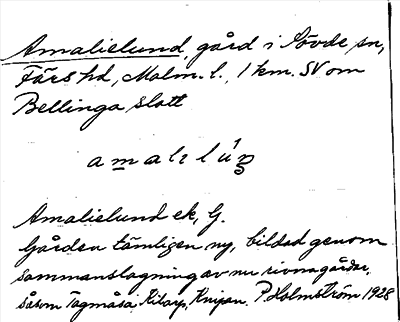 Amalielund, gård i Sövde sn,
Färs hd, Malm. l., 1 km. SV om
Bellinga slott
Amalielund ek, G.
Gården tämligen ny, bildad genom
sammanslagning av nu rivna gårdar,
såsom Tågmåsa, Kitarp, Knipan. P. Holmström 1928